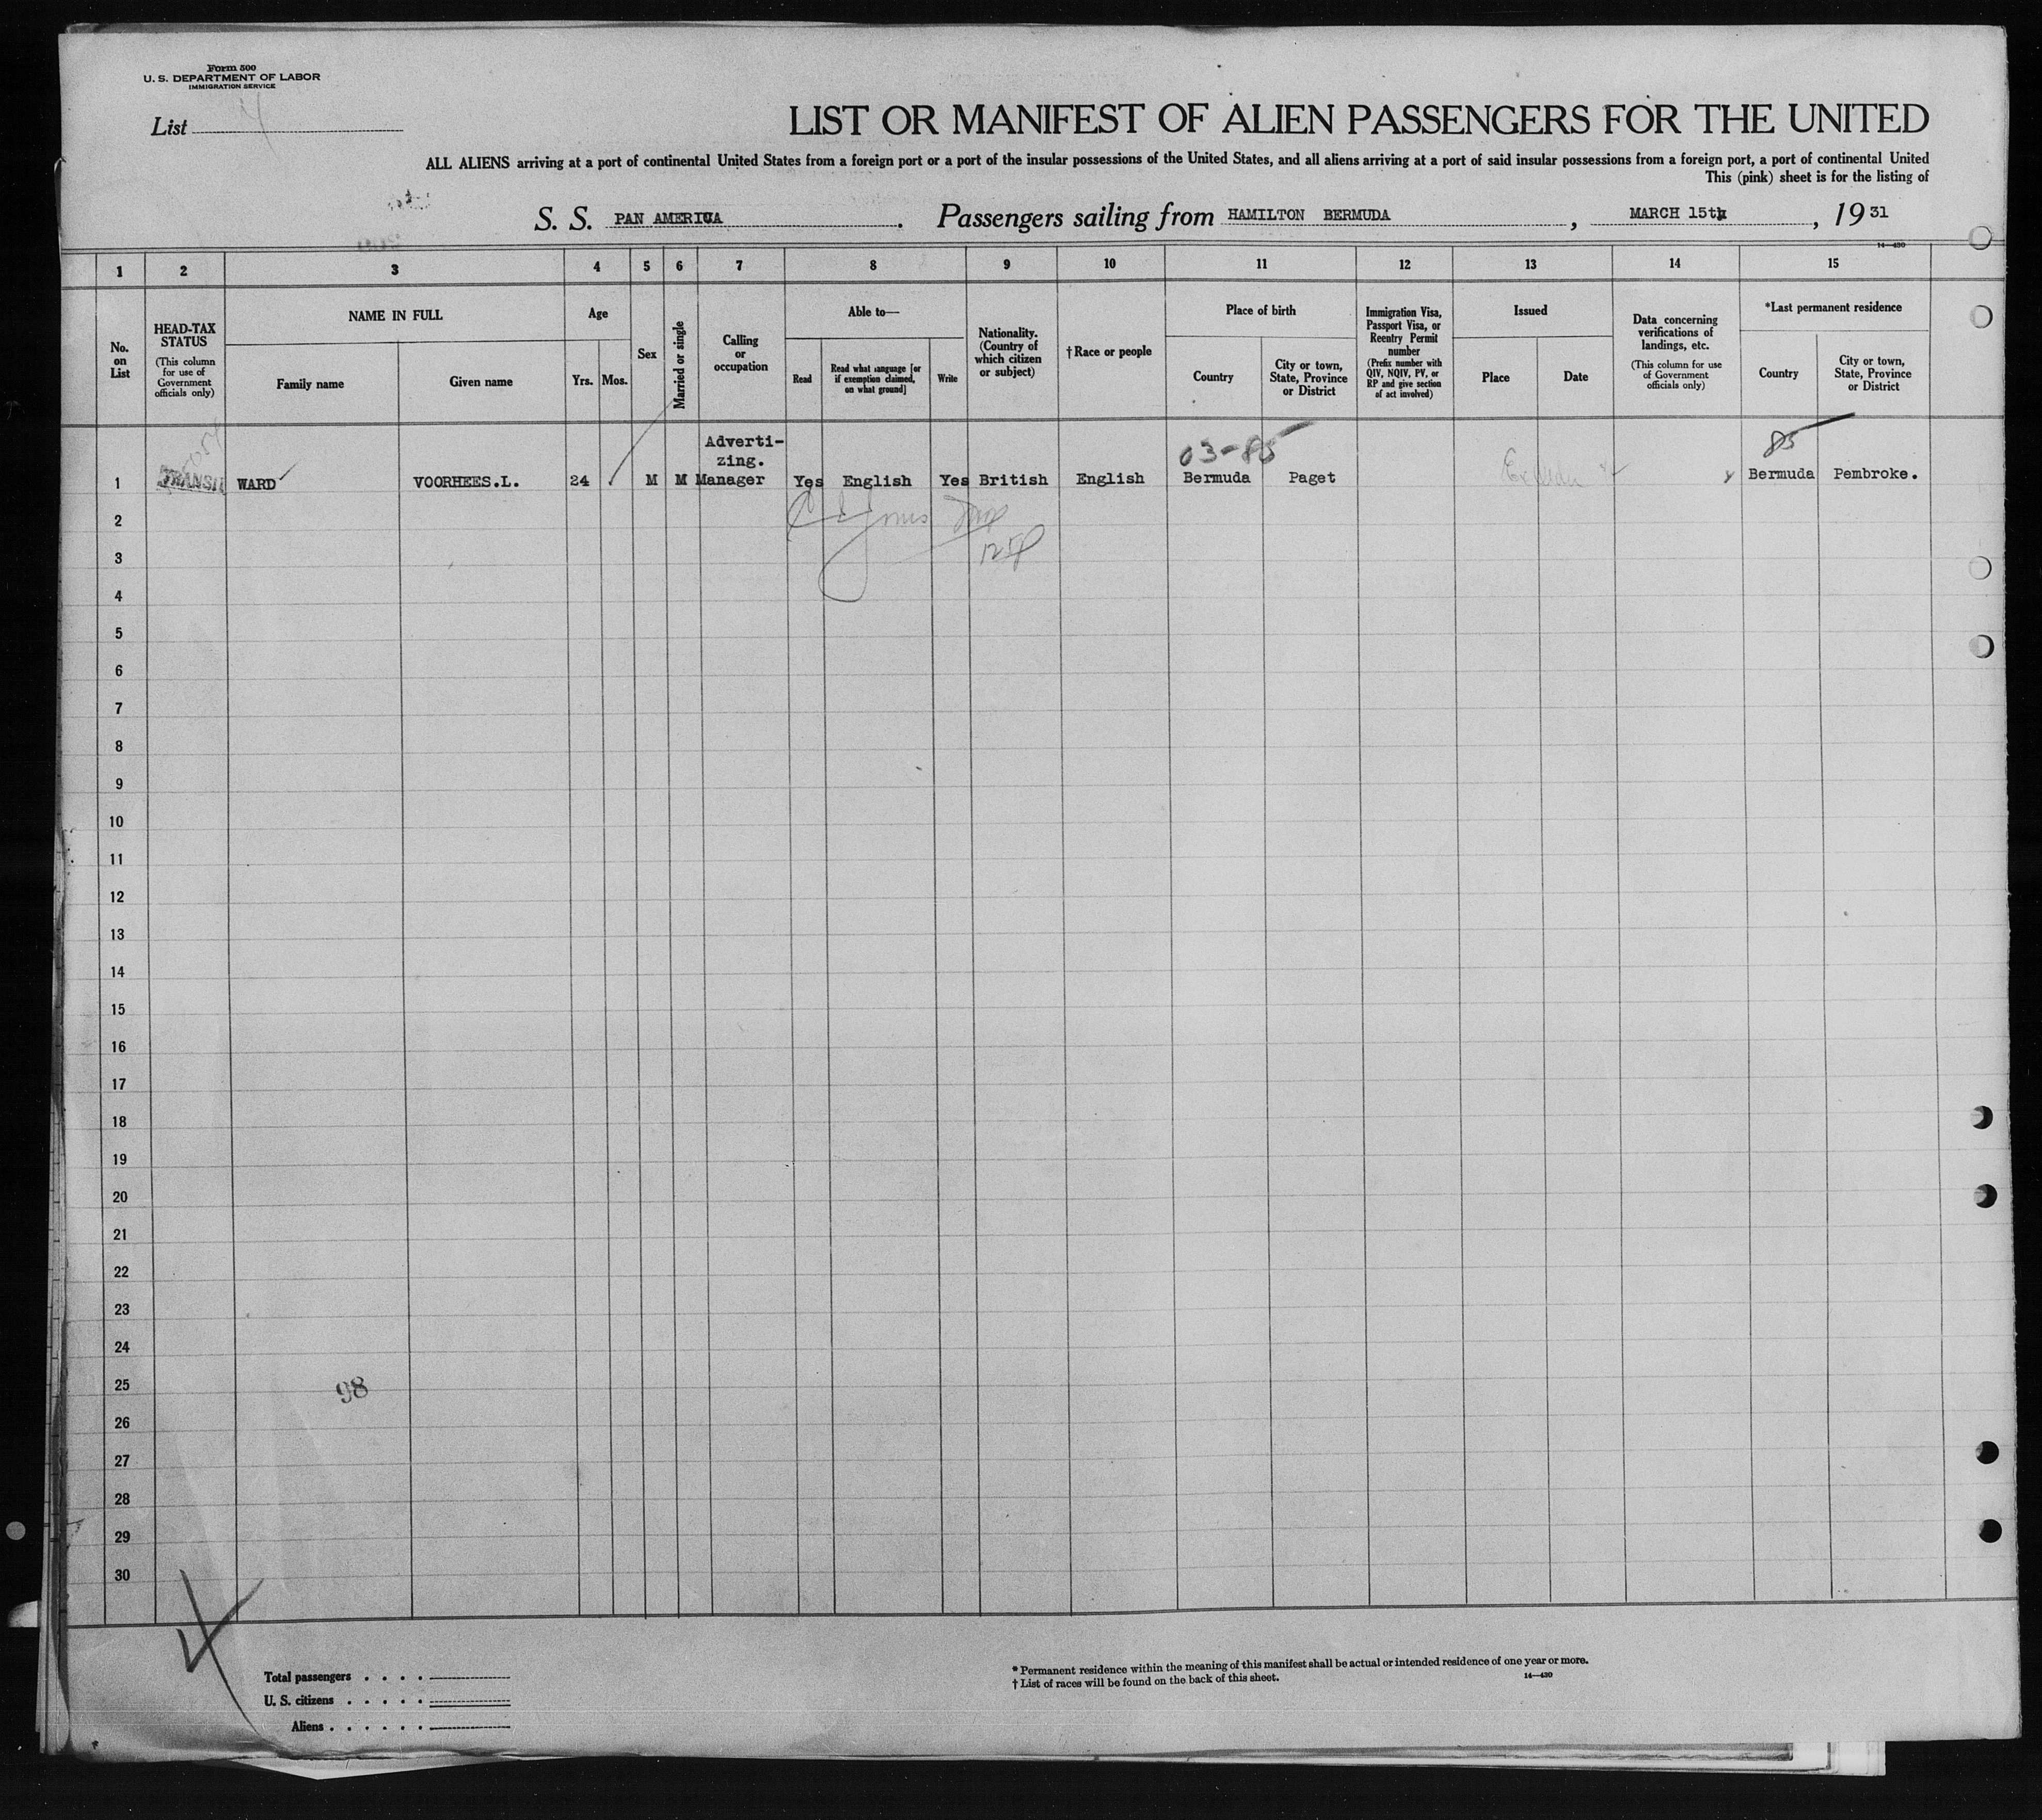 Form 500
U. S. DEPARTMENT OF LABOR
IMMIGRATION SERVICE
List
LIST OR MANIFEST OF ALIEN PASSENGERS FOR THE UNITED
ALL ALIENS arriving at a port of continental United States from a foreign port or a port of the insular possessions of the United States, and all aliens arriving at a port of said insular possessions from a foreign port, a port of continental United
This (pink) sheet is for the listing of
S. S. PAN AMERICA. Passengers sailing from HAMILTON BERMUDA, MARCH 15th, 1931
14—430
1 2 3 4 5 6 7 8 9 10 11 12 13 14 15
No. on List
HEAD-TAX STATUS
(This column for use of Government officials only)
NAME IN FULL
Family name
Given name
Age
Yrs.
Mos.
Sex
Married or single
Calling or occupation
Able to—
Read
Read what language [or if exemption claimed, on what ground]
Write
Nationality. (Country of which citizen or subject)
†Race or people
Place of birth
Country
City or town, State, Province or District
Immigration Visa, Passport Visa, or Reentry Permit number
(Prefix number with QIV, NQIV, PV, or RP and give section of act involved)
Issued
Place
Date
Data concerning verifications of landings, etc.
(This column for use of Government officials only)
*Last permanent residence
Country
City or town, State, Province or District
03-85
85
1 TRANSIT WARD VOORHEES.L. 24 M M Adverti-zing. Manager Yes English Yes British English Bermuda Paget Bermuda Pembroke.
2
3
4
5
6
7
8
9
10
11
12
13
14
15
16
17
18
19
20
21
22
23
24
25
98
26
27
28
29
30
Total passengers . . . .
U. S. citizens . . . . .
Aliens . . . . . .
* Permanent residence within the meaning of this manifest shall be actual or intended residence of one year or more.
† List of races will be found on the back of this sheet.
14—430